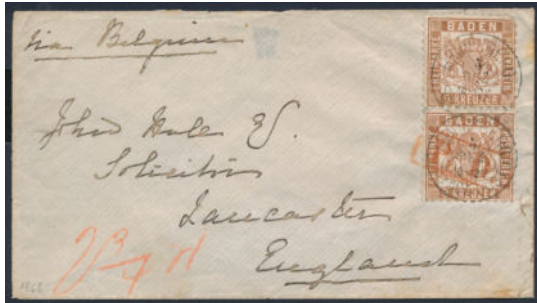 via Belgium
BADEN
KREUZER
BADEN
John Hale Es.
Solicitor
Lancaster
England
1868